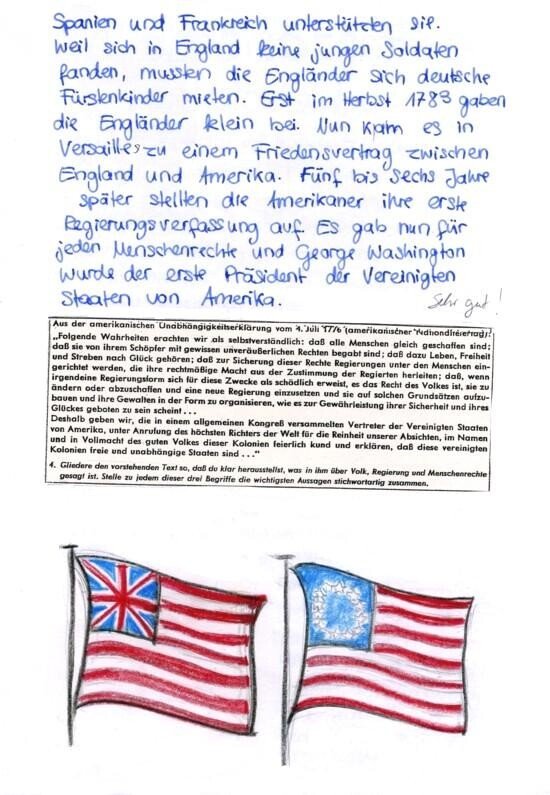 Spanien und Frankreich unterstützten sie.
Weil sich in England keine jungen Soldaten
fanden, mussten die Engländer sich deutsche
Fürstenkinder mieten. Erst im Herbst 1783 gaben
die Engländer klein bei. Nun kam es in
Versailles zu einem Friedensvertrag zwischen
England und Amerika. Fünf bis sechs Jahre
später stellten die Amerikaner ihre erste
Regierungsverfassung auf. Es gab nun für
jeden Menschenrechte und George Washington
wurde der erste Präsident der Vereinigten
Staaten von Amerika.
Sehr gut!
Aus der amerikanischen Unabhängigkeitserklärung vom 4. Juli 1776 (amerikanischer Nationalfeiertag):
„Folgende Wahrheiten erachten wir als selbstverständlich: daß alle Menschen gleich geschaffen sind;
daß sie von ihrem Schöpfer mit gewissen unveräußerlichen Rechten begabt sind; daß dazu Leben, Freiheit
und Streben nach Glück gehören; daß zur Sicherung dieser Rechte Regierungen unter den Menschen ein-
gerichtet werden, die ihre rechtmäßige Macht aus der Zustimmung der Regierten herleiten; daß, wenn
irgendeine Regierungsform sich für diese Zwecke als schädlich erweist, es das Recht des Volkes ist, sie zu
ändern oder abzuschaffen und eine neue Regierung einzusetzen und sie auf solchen Grundsätzen aufzu-
bauen und ihre Gewalten in der Form zu organisieren, wie es zur Gewährleistung ihrer Sicherheit und ihres
Glückes geboten zu sein scheint ...
Deshalb geben wir, die in einem allgemeinen Kongreß versammelten Vertreter der Vereinigten Staaten
von Amerika, unter Anrufung des höchsten Richters der Welt für die Reinheit unserer Absichten, im Namen
und in Vollmacht des guten Volkes dieser Kolonien feierlich kund und erklären, daß diese vereinigten
Kolonien freie und unabhängige Staaten sind ..."
4. Gliedere den vorstehenden Text so, daß du klar herausstellst, was in ihm über Volk, Regierung und Menschenrechte
gesagt ist. Stelle zu jedem dieser drei Begriffe die wichtigsten Aussagen stichwortartig zusammen.